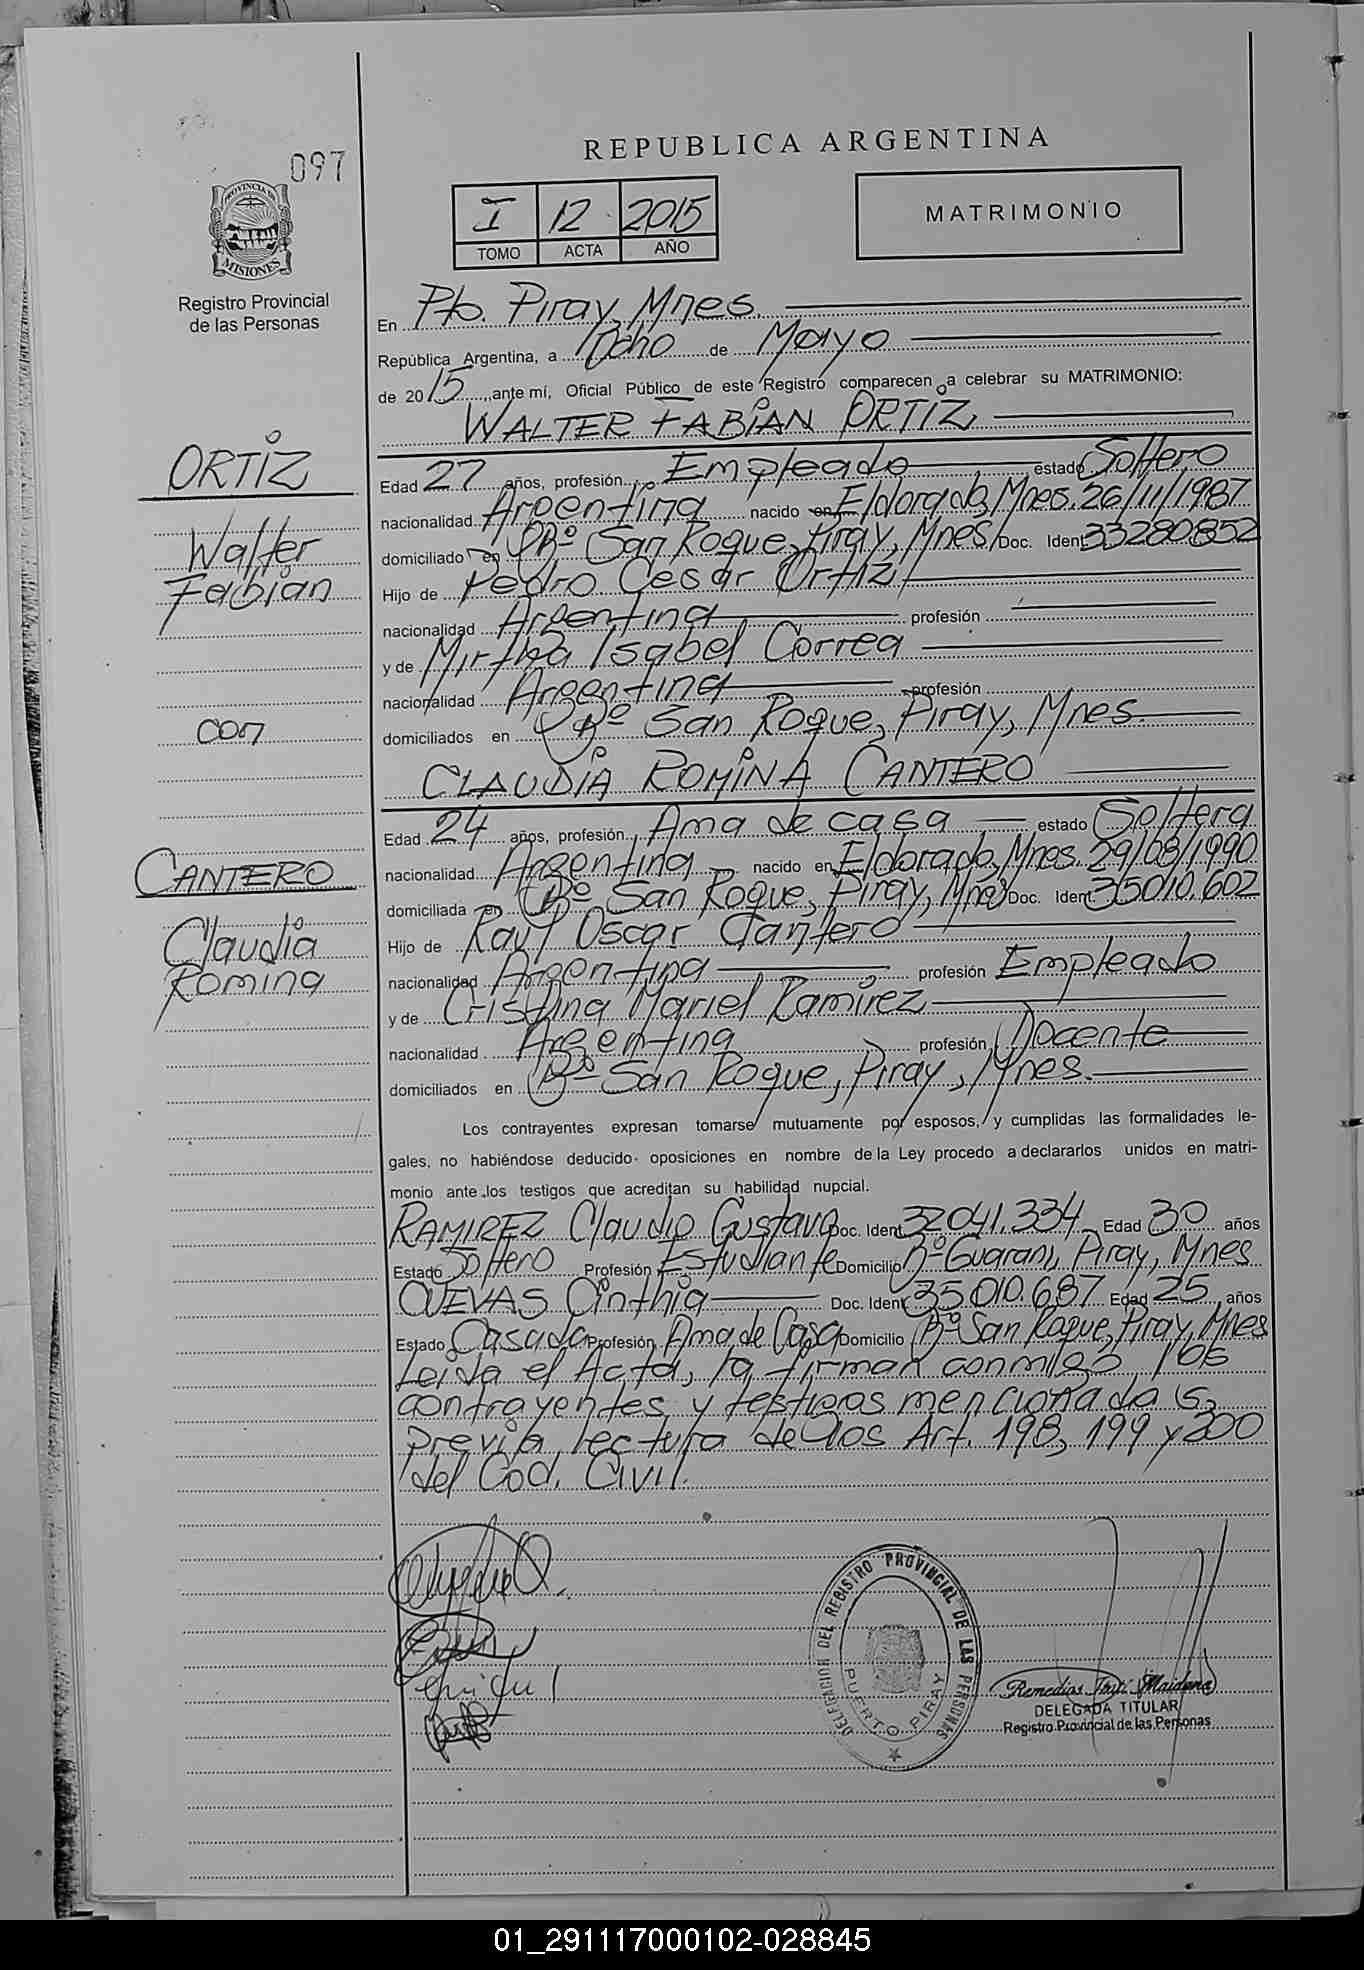 REPUBLICA ARGENTINA
097
PROVINCIA DE
MISIONES
Registro Provincial
de las Personas
I 12 2015
TOMO ACTA AÑO
MATRIMONIO
En Pto. Piray, Mnes.
República Argentina, a Ocho de Mayo
de 2015, ante mí, Oficial Público de este Registro comparecen a celebrar su MATRIMONIO:
WALTER FABIAN ORTIZ
ORTIZ
Walter
Fabián
con
CANTERO
Claudia
Romina
Edad 27 años, profesión Empleado estado Soltero
nacionalidad Argentina nacido en Eldorado, Mnes. 26/11/1987
domiciliado en Bº San Roque, Piray, Mnes Doc. Ident. 33280.852
Hijo de Pedro Cesar Ortiz
nacionalidad Argentina profesión
y de Mirtha Isabel Correa
nacionalidad Argentina profesión
domiciliados en Bº San Roque, Piray, Mnes.
CLAUDIA ROMINA CANTERO
Edad 24 años, profesión Ama de casa estado Soltera
nacionalidad Argentina nacido en Eldorado, Mnes. 29/08/1990
domiciliada en Bº San Roque, Piray, Mnes Doc. Ident. 35010.602
Hijo de Raul Oscar Cantero
nacionalidad Argentina profesión Empleado
y de Cristina Mariel Ramirez
nacionalidad Argentina profesión Docente
domiciliados en Bº San Roque, Piray, Mnes.
Los contrayentes expresan tomarse mutuamente por esposos, y cumplidas las formalidades le-
gales, no habiéndose deducido oposiciones en nombre de la Ley procedo a declararlos unidos en matri-
monio ante los testigos que acreditan su habilidad nupcial.
RAMIREZ Claudio Gustavo Doc. Ident. 32041.334 Edad 30 años
Estado Soltero Profesión Estudiante Domicilio Bº Guarani, Piray, Mnes
CUEVAS Cinthia Doc. Ident. 35.010.687 Edad 25 años
Estado Casada Profesión Ama de Casa Domicilio Bº San Roque, Piray, Mnes
Leida el Acta, la firman conmigo los
contrayentes y testigos mencionados,
previa lectura de los Art. 198, 199 y 200
del Cod. Civil.
DELEGACION DEL REGISTRO PROVINCIAL DE LAS PERSONAS
PUERTO PIRAY
Remedios Maidana
DELEGADA TITULAR
Registro Provincial de las Personas
01_291117000102-028845